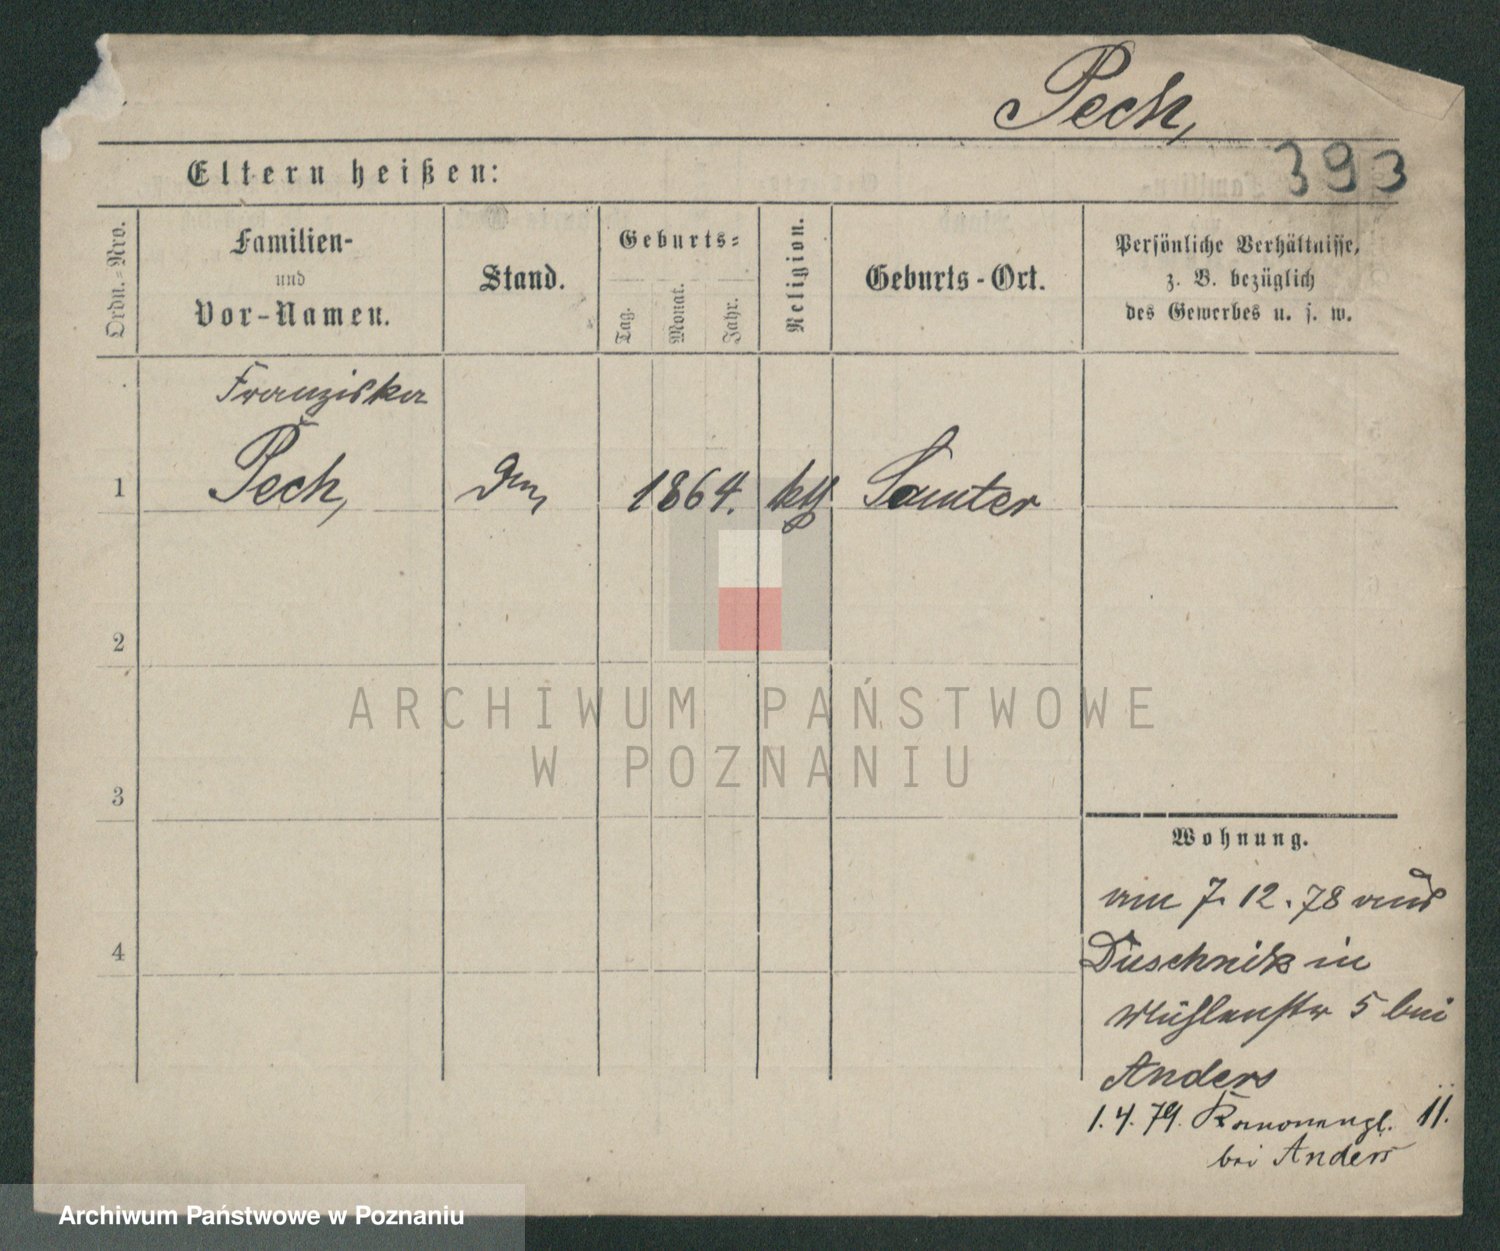 Pech,
393
Eltern heißen:
Ordn.-Nro.
Familien-
und
Vor-Namen.
Stand.
Geburts-
Tag.
Monat.
Jahr.
Religion.
Geburts-Ort.
Persönliche Verhältnisse,
z. B. bezüglich
des Gewerbes u. s. w.
Franziska
1 Pech, 1864. kth Samter
2
3
4
Wohnung.
am 7. 12. 78 aus
Duschnik in
Mühlenstr 5 bei
Anders
1. 4. 79. Kanonengl. 11.
bei Anders
ARCHIWUM PAŃSTWOWE
W POZNANIU
Archiwum Państwowe w Poznaniu